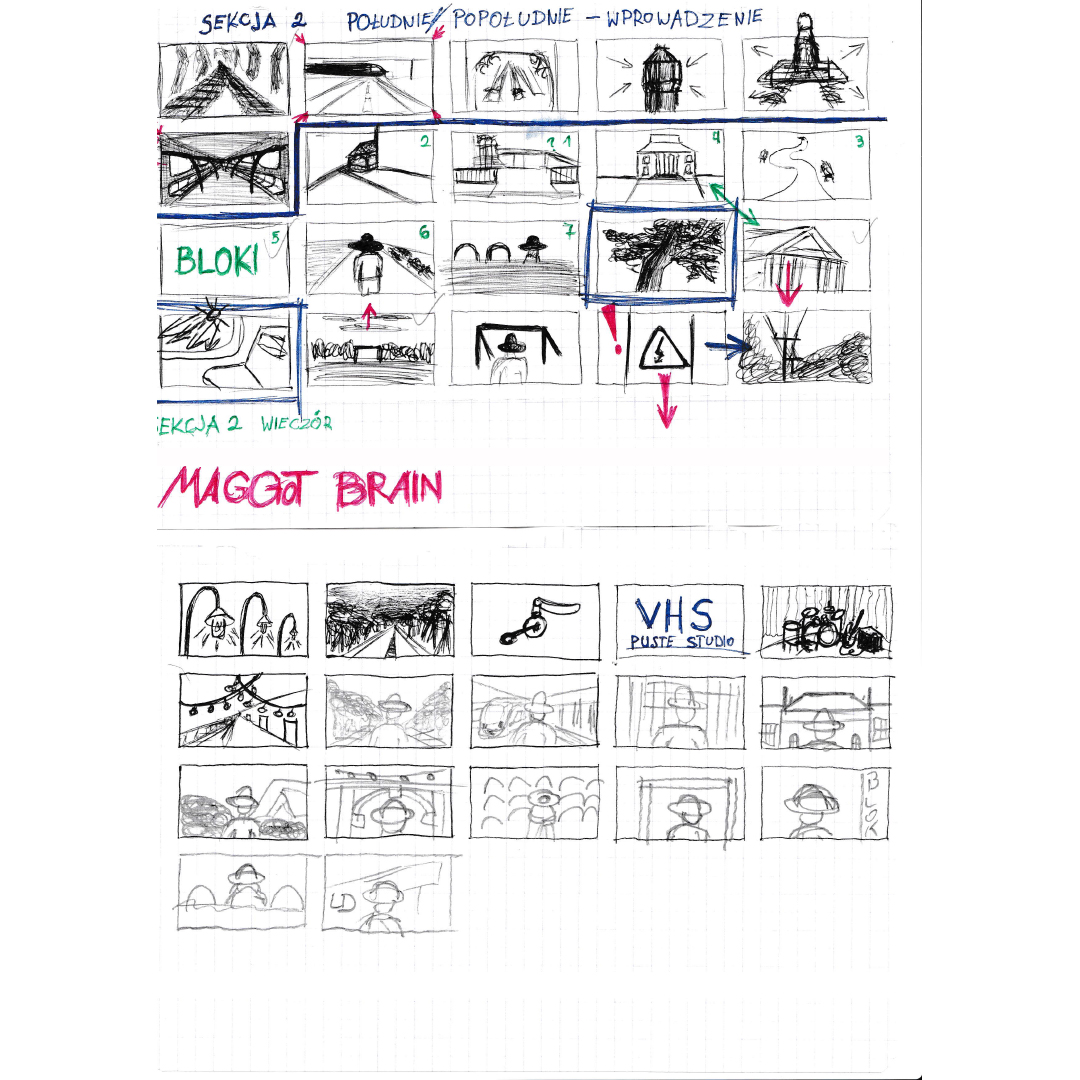 SEKCJA 2 POŁUDNIE/ POPOŁUDNIE – WPROWADZENIE
2
? 1
4
3
BLOKI 5
6
7
!
SEKCJA 2 WIECZÓR
MAGGOT BRAIN
VHS
PUSTE STUDIO
BLOK